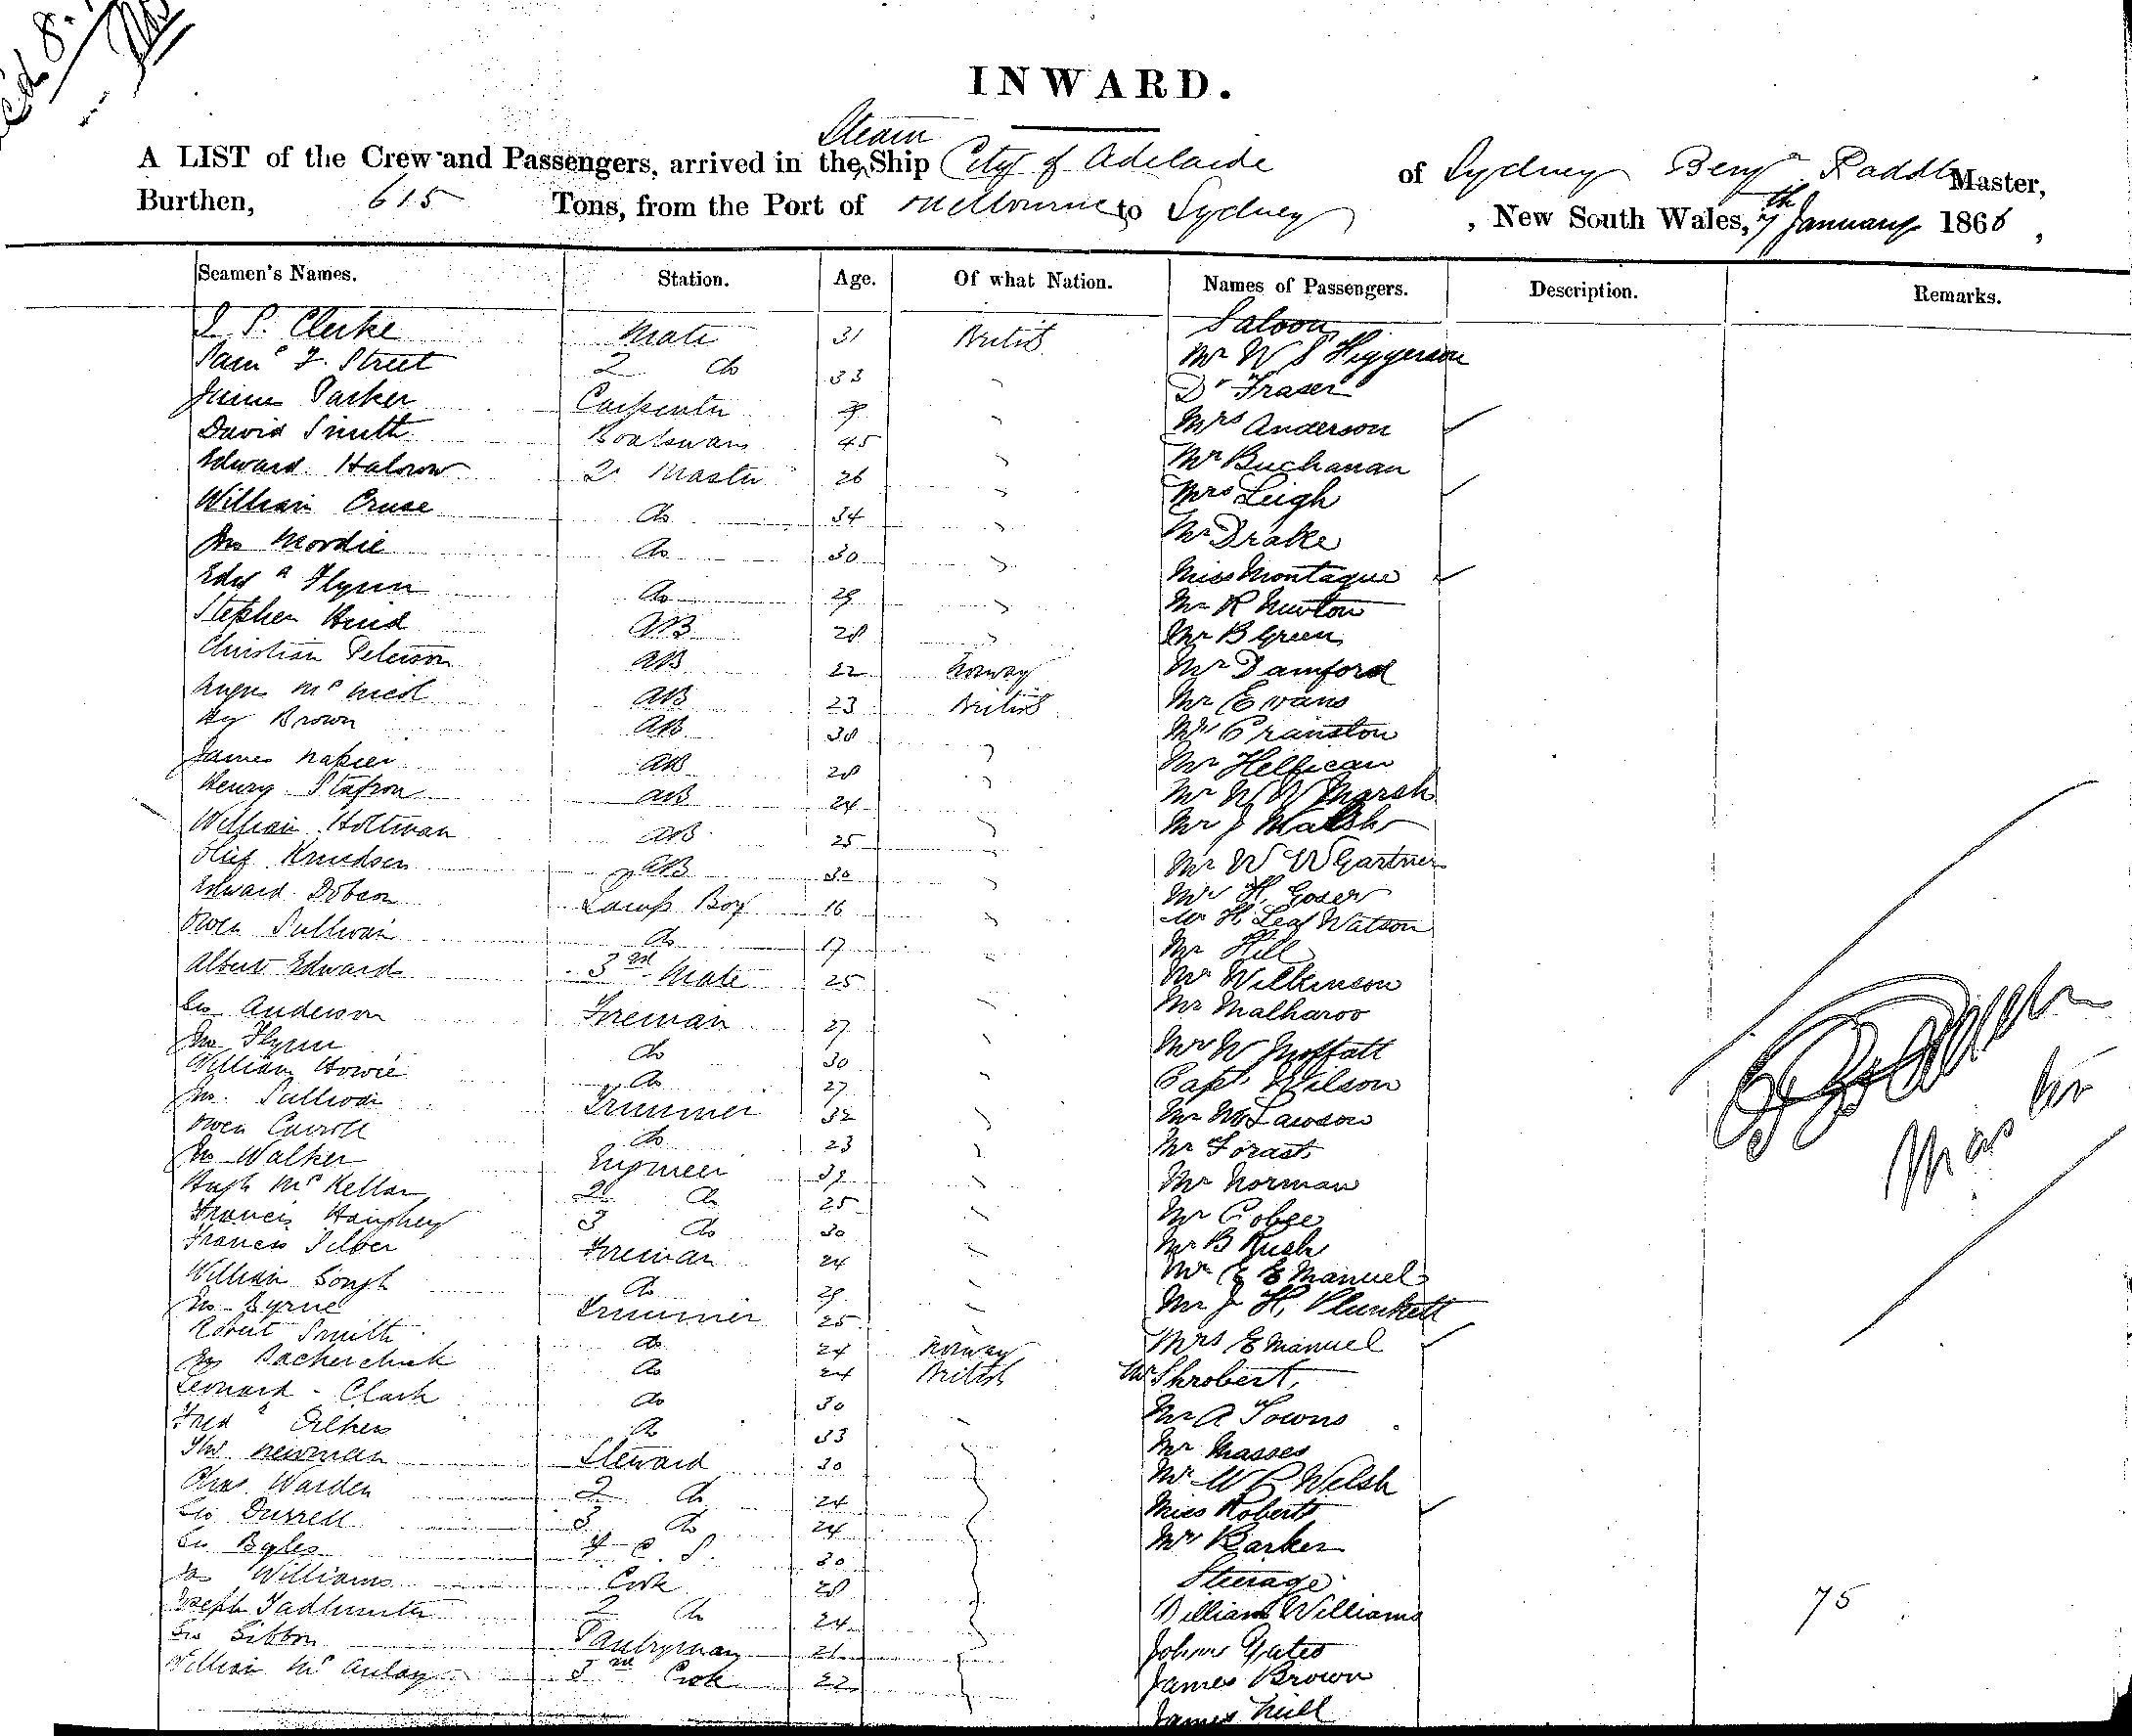 INWARD.
Steam
A LIST of the Crew and Passengers, arrived in the Ship City of Adelaide of Sydney Benjn Master,
Burthen, 615 Tons, from the Port of Melbourne to Sydney, New South Wales, 7th January 1866,
Seamen's Names. Station. Age. Of what Nation. Names of Passengers. Description. Remarks.
J. P. Clerke Mate 31 British Saloon
Saml F. Street 2 do 33 " Mr W S Higgerson
James Parker Carpenter " Dr Fraser
David Smith Boatswain 45 " Mrs Anderson
Edward Halcrow Q. Master 26 " Mr Buchanan
William Cruse do 34 " Mrs Leigh
Jno Mordie do 30 " Mr Drake
Edwd Flynn do 29 " Miss Montague
Stephen AB 28 " Mr R Newton
Christian Peterson AB 22 Norway Mr B Green
Angus McNicol AB 23 British Mr Damford
Hy Brown AB 38 Mr Evans
James Napier AB 28 " Mr Cranston
Henry AB 24 " Mr
William Holtman AB 25 " Mr W W Marsh
Olif Knudsen AB 30 " Mr J Walsh
Edward Dobson Lamp Boy 16 " Mr W W Gartner
Owen Sullivan do 17 " Mr H.
Albert Edwards 3rd Mate 25 " Mr H. Leaf Watson
Geo Anderson Fireman 27 " Mr Hill
Jno Flynn do 30 " Mr Wilkinson
William Howie do 27 " Mr Malharoo
Jno. Sullivan Trimmer 32 " Mr W Moffatt
Owen Carroll do 23 " Capt Wilson
Jno Walker Engineer 39 " Mr Lawson
Hugh McKellar 2 do 25 " Mr Forast
Francis Hamphey 3 do 30 " Mr Norman
Francis Silber Fireman 24 " Mr
William Gough do 29 " Mr B Rush
Jno Byrne Trimmer 25 " Mr E Emanuel
Robert Smith do 24 Norway Mr J H. Plunkett
do 24 British Mrs Emanuel
Leonard Clark do 30 Mr Shrobert,
Fredk do 33 Mr A Towns
Thos Newman Steward 30 Mr Masses
Chas. Warden 2 do 24 Mr W P Welsh
Geo Durrell 3 do 24 Miss Roberts
Geo Byles F. C. S. 30 Mr Barker
Jas Williams Cook 28 Steerage
Joseph Tadhunter 2 do 24 William Williams 75
Geo Gibbon Pantryman 21 John Yates
William McAulay 3rd Cook 22 James Brown
James Neill
Master